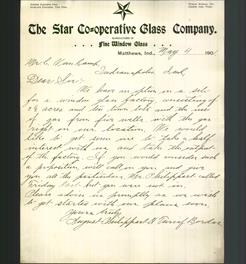 The Star Co-operative Glass Company.
MANUFACTURERS OF
Fine Window Glass
Matthews, Ind., May 4 190
Mr C. Van Camp
Indianapolis Ind.
Dear Sir:
We have an option in a
for a window glass factory consisting of
acres and ten
of gas from five wells with the gas
right on our location. We would
like to get some one to take a
interest with us and take the output
of the factory. If you would consider such
a proposition, will call on you and give
you all the particulars. Mr. Philippart called
Friday but you were not in.
Please advise us promptly as we wish
to get started with our plans soon.
Yours Truly
August Philippart &